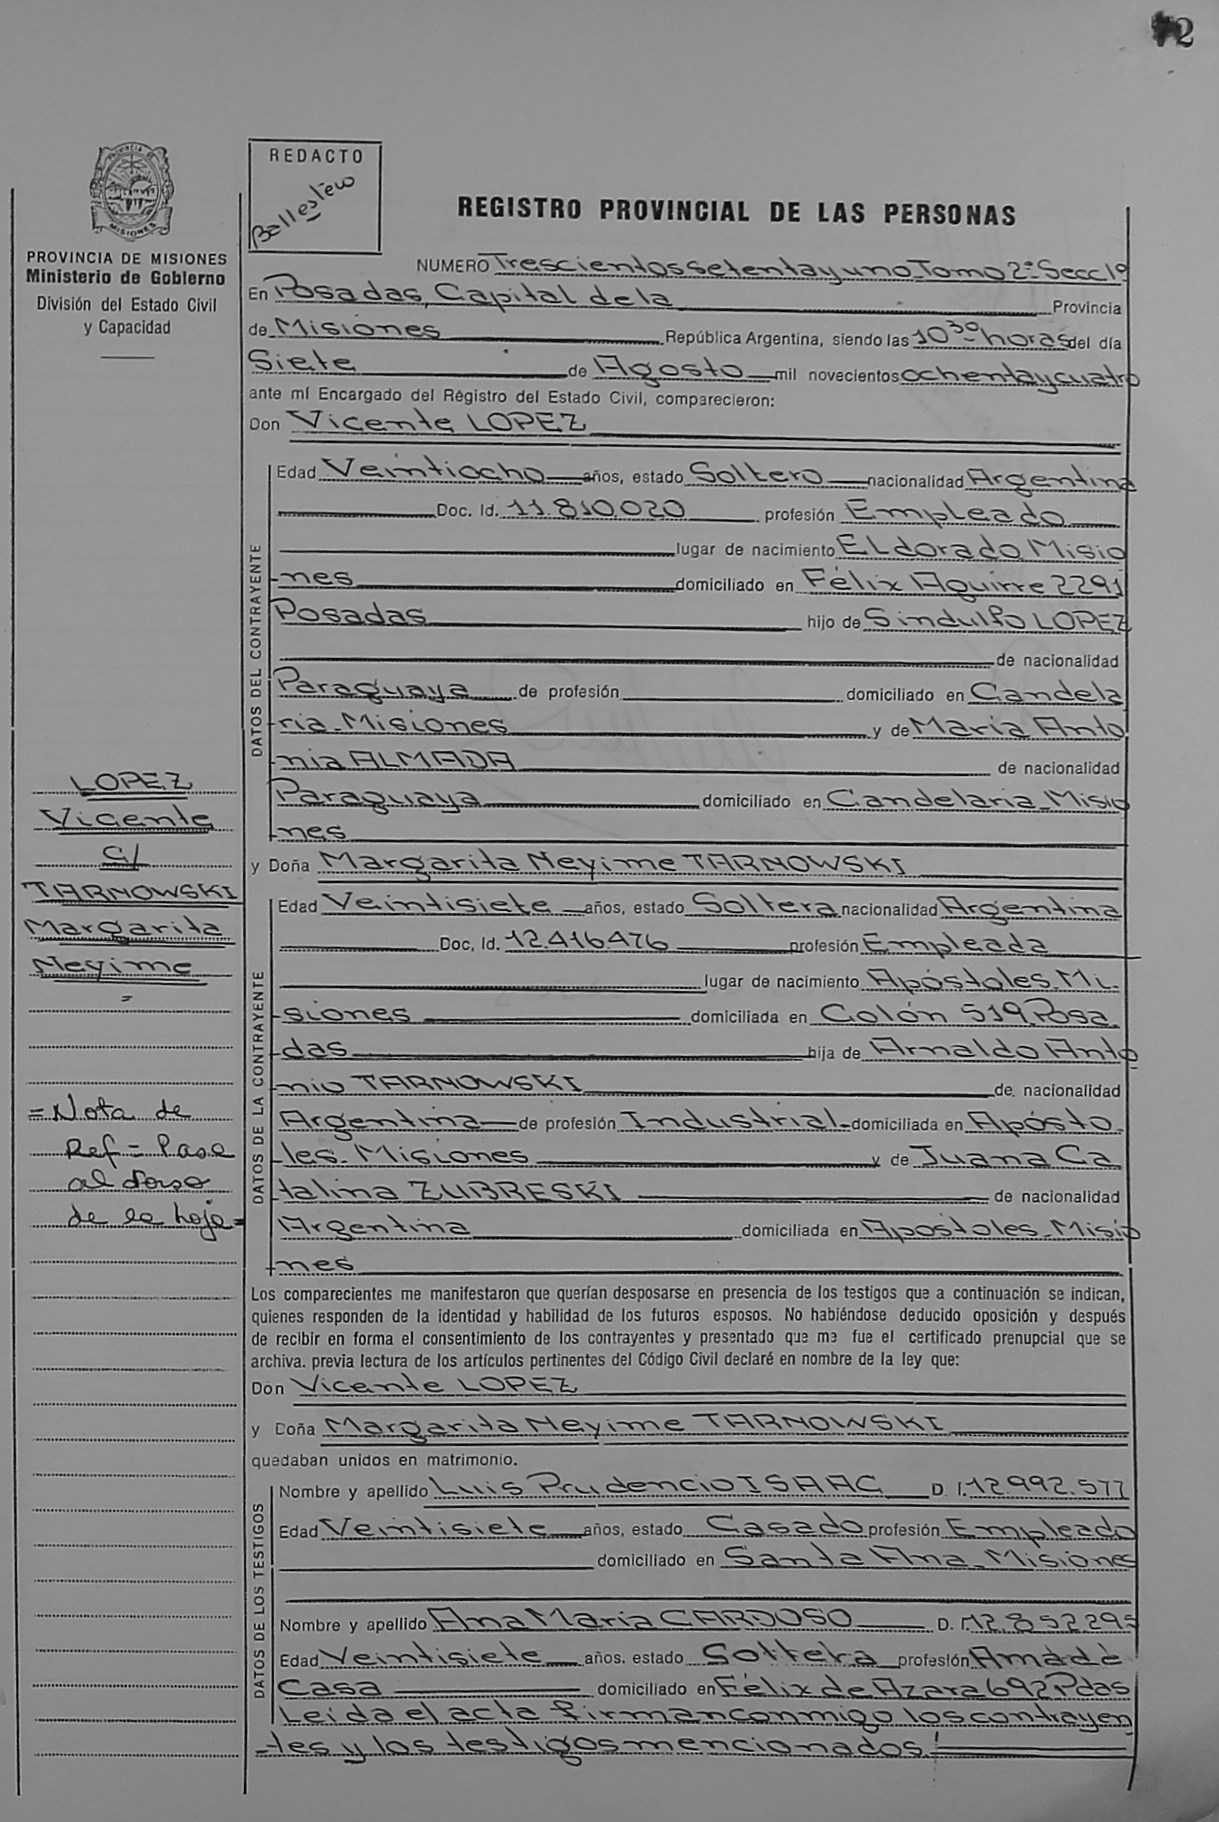 72
REDACTO
Ballestero
PROVINCIA DE MISIONES
Ministerio de Gobierno
División del Estado Civil
y Capacidad
REGISTRO PROVINCIAL DE LAS PERSONAS
NUMERO Trescientos setenta y uno Tomo 2º Secc 1º
En Posadas, Capital de la Provincia
de Misiones República Argentina, siendo las 10 30 horas del día
Siete de Agosto mil novecientos ochenta y cuatro
ante mí Encargado del Registro del Estado Civil, comparecieron:
Don Vicente LOPEZ
DATOS DEL CONTRAYENTE
Edad Veintiocho años, estado Soltero nacionalidad Argentina
Doc. Id. 11.810.020 profesión Empleado
lugar de nacimiento ELdorado Misio
nes domiciliado en Félix Aguirre 2291
Posadas hijo de Sindulfo LOPEZ
de nacionalidad
Paraguaya de profesión domiciliado en Candela
ria Misiones y de María Anto
nia ALMADA de nacionalidad
Paraguaya domiciliado en Candelaria Misio
nes
y Doña Margarita Neyime TARNOWSKI
DATOS DE LA CONTRAYENTE
Edad Veintisiete años, estado Soltera nacionalidad Argentina
Doc. Id. 12.416476 profesión Empleada
lugar de nacimiento Apóstoles Mi-
siones domiciliada en Colón 519 Posa
das hija de Arnaldo Anto
nio TARNOWSKI de nacionalidad
Argentina de profesión Industrial domiciliada en Apósto
les Misiones y de Juana Ca
talina ZUBRESKI de nacionalidad
Argentina domiciliada en Apostoles Misio
nes
LOPEZ
Vicente
c/
TARNOWSKI
Margarita
Neyime
=
= Nota de
Ref = Pase
al dorso
de la hoja =
Los comparecientes me manifestaron que querían desposarse en presencia de los testigos que a continuación se indican,
quienes responden de la identidad y habilidad de los futuros esposos. No habiéndose deducido oposición y después
de recibir en forma el consentimiento de los contrayentes y presentado que me fue el certificado prenupcial que se
archiva. previa lectura de los artículos pertinentes del Código Civil declaré en nombre de la ley que:
Don Vicente LOPEZ
y Doña Margarita Neyime TARNOWSKI
quedaban unidos en matrimonio.
DATOS DE LOS TESTIGOS
Nombre y apellido Luis Prudencio ISAAC D. I. 12992.577
Edad Veintisiete años, estado Casado profesión Empleado
domiciliado en Santa Ana Misiones
Nombre y apellido Ana María CARDOSO D. I. 12.852.295
Edad Veintisiete años. estado Soltera profesión Ama de
Casa domiciliado en Félix de Azara 692 Pdas
Leída el acta firman conmigo los contrayen
tes y los testigos mencionados